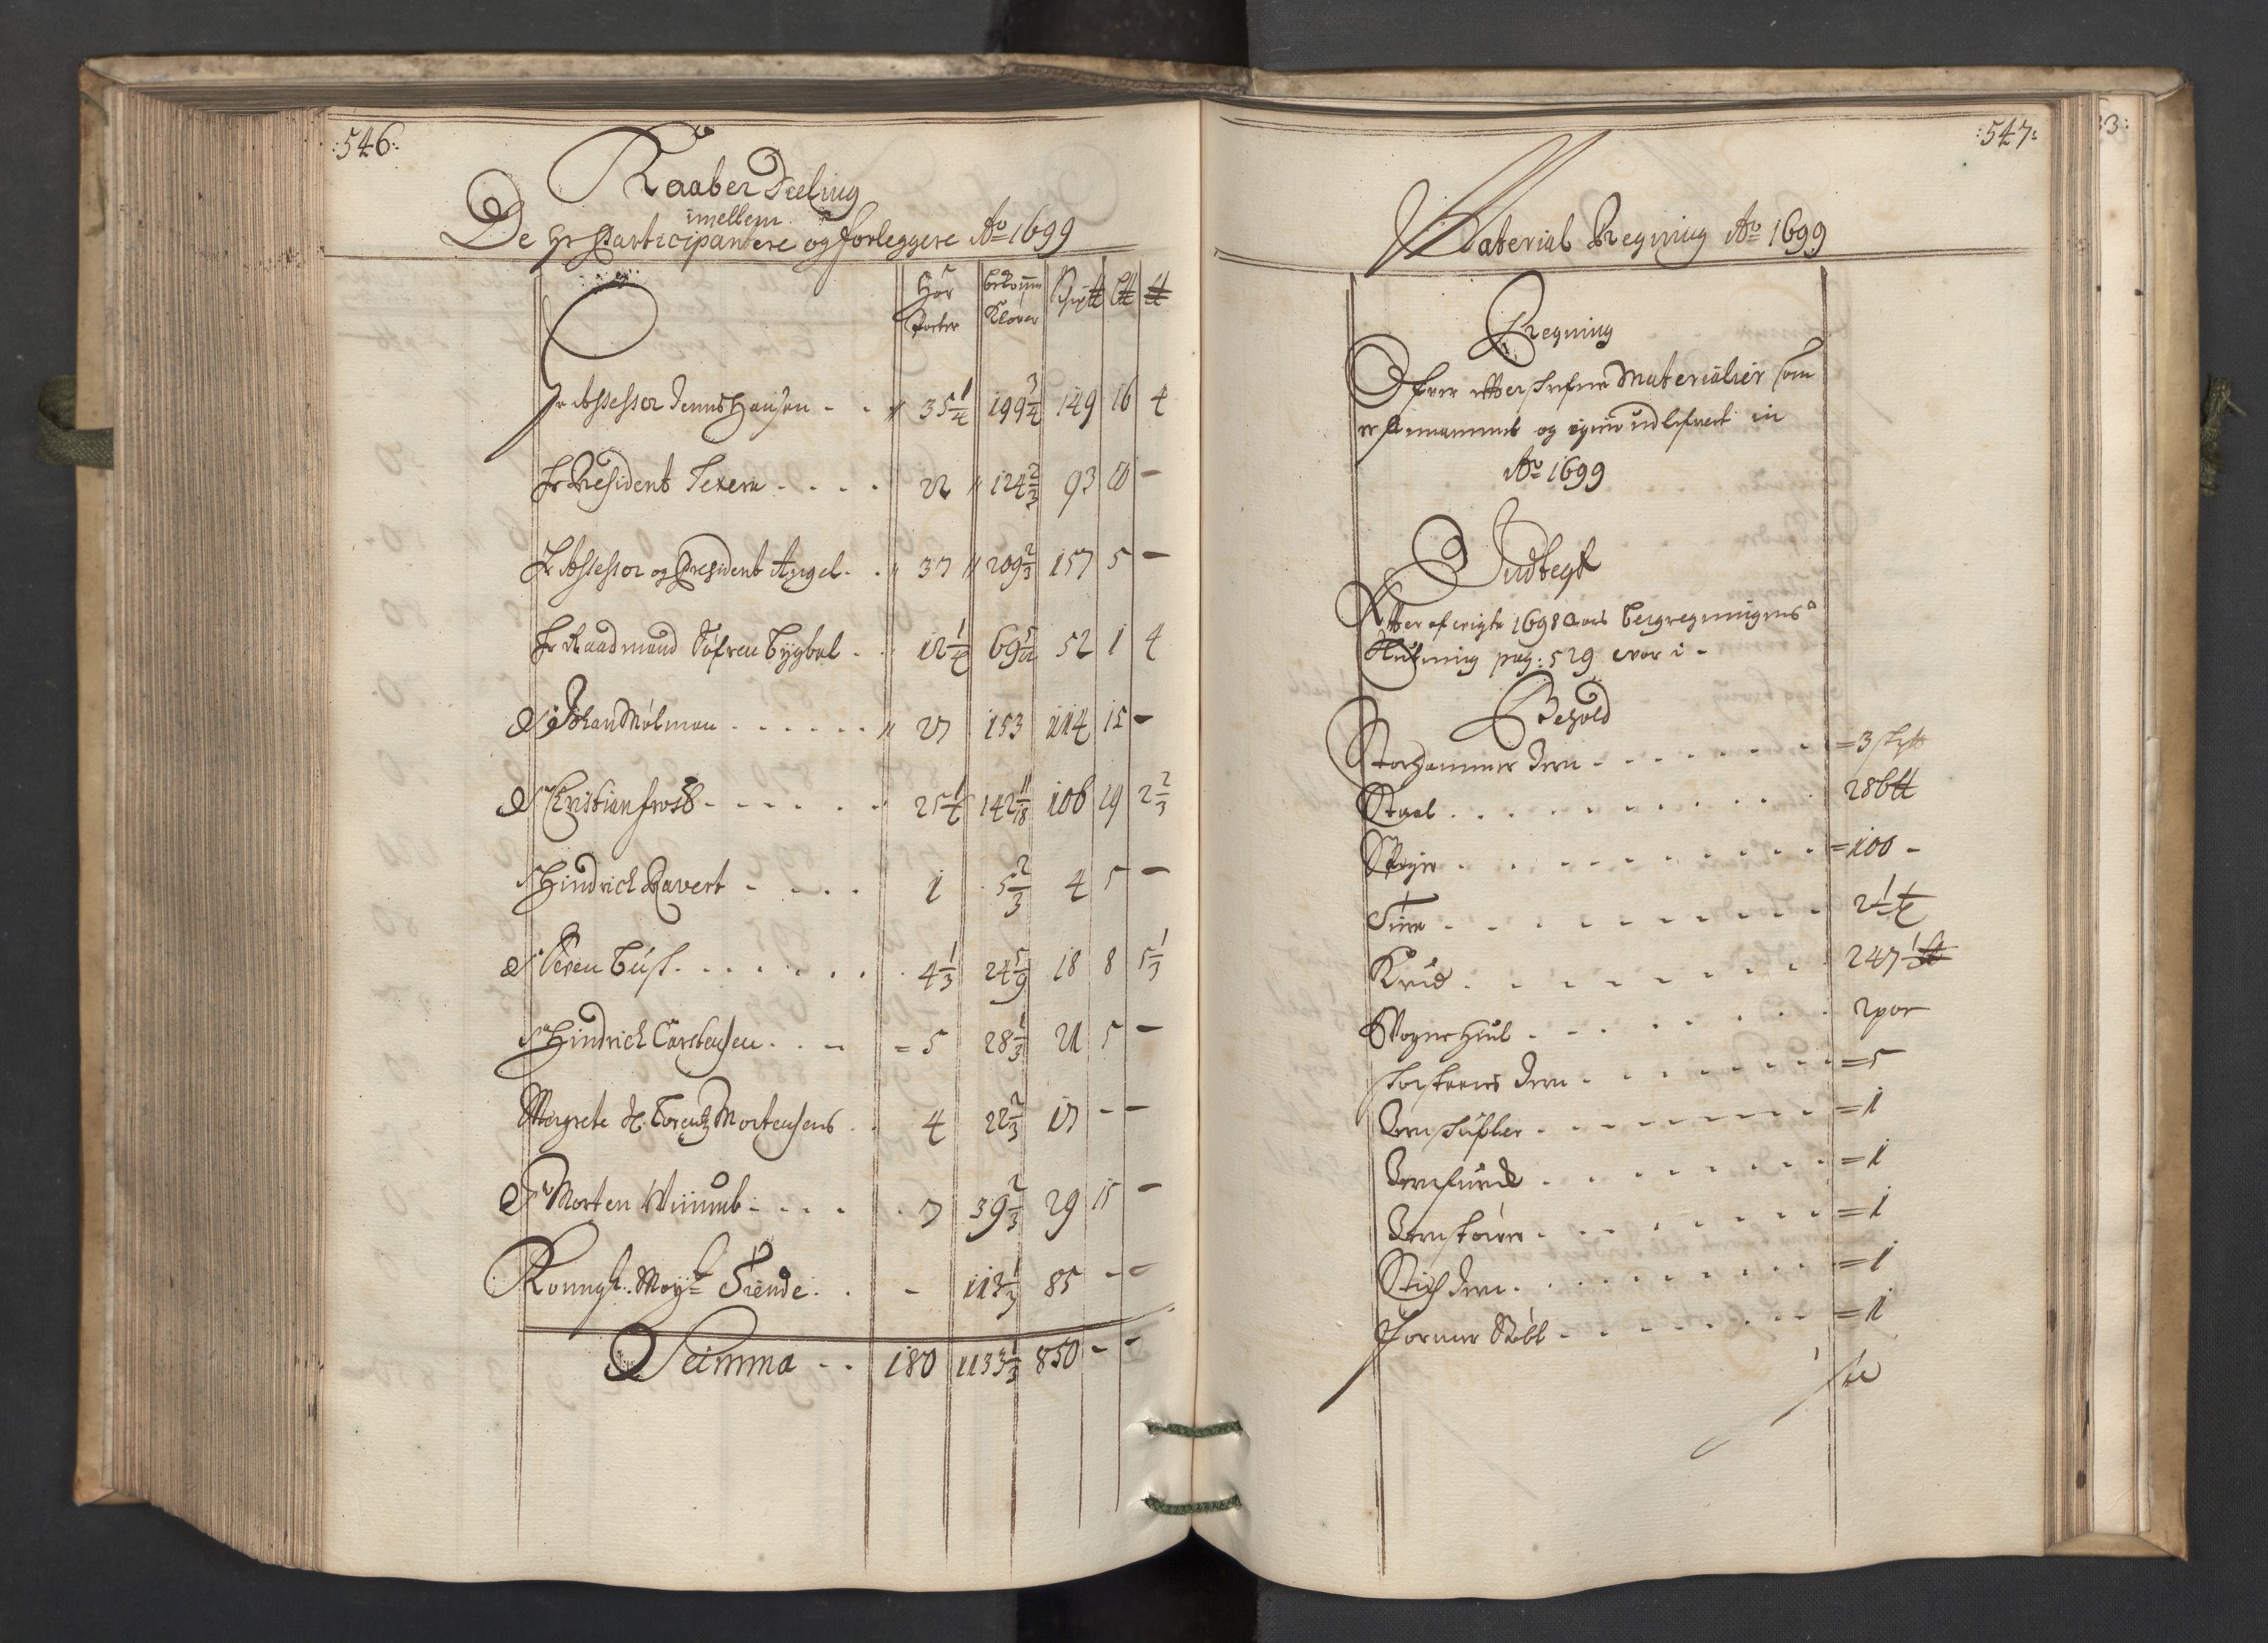 :546:
Kaaber Deeling
imellem
De Hr Participantere og forleggere Ao 1699
Har Parter | bekomm Klover | Skip℔ | L℔ | ℔
Hr Assessor Jenns Hansen - - 35 1/4 199 3/4 149 16 4
Hr President Lexern - - - - 22 124 2/3 93 10 -
Hr Assessor og President Angel - - 37 209 2/3 157 5 -
Hr Raadmand Søfren Bygbal - - 12 1/4 69 5/12 52 1 4
Sr Johan Mølman - - - - - - 27 153 114 15 -
Sr Christian frost - - - - - - 25 1/6 142 11/18 106 19 2 2/3
Sr Hindrich Ravert - - - - 1 5 2/3 4 5 -
Sr Søren - - - - - - 4 1/3 24 5/9 18 8 5 1/3
Sr Hindrich Carstensen - - - = 5 28 1/3 21 5 -
Margrete Sl. Lorentz Mortensens - - 4 22 2/3 17 - -
Sr Morten - - - - 7 39 2/3 29 15 -
Konngl. Mayts Tiende - - - 113 1/3 85 - -
Summa - - 180 1133 1/3 850 - -
:547:
Material Regning Ao 1699
Regning
Ofver efterskrefne Materialier som
er Annammet og igien udlefvert in
Ao 1699
Indtegt
Efter afvigte 1698 Aars bergregningens
Slutning pag: 529 var i -
Behold
Storhammer Jern - - - - - - - = 3 sk℔
Staal - - - - - - - - - 28 b℔
- - - - - - - - - = 100 -
- - - - - - - - - 2 1/2 t
Krud - - - - - - - - 247 1/2 ℔
Wogne Hiul - - - - - - - 2 par
Jern - - - - - - - = 5
- - - - - - - = 1
- - - - - - - = 1
- - - - - - - = 1
Stich Jern - - - - - - - = 1
- - - - - - - = 1